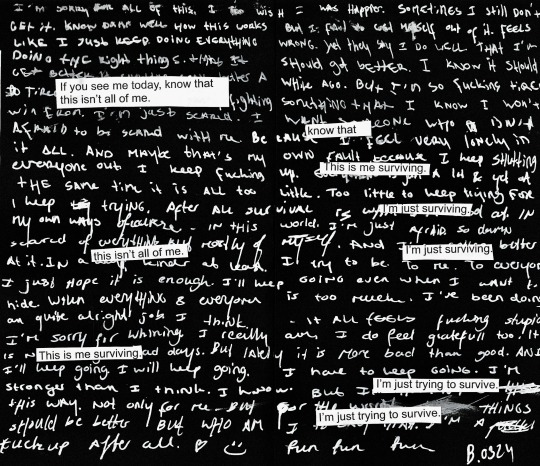 I'm sorry for all of this. I too wish I was happier. Sometimes I still don't
get it. Know damn well how this works but I fail to get myself out of it. Feels
like I just keep doing everything wrong. Yet they say I do well that I'm
doing the right things. That I'll should get better. I know it should
get better
while ago. But I'm so fucking tired
If you see me today, know that
this isn't all of me.
so tired
fighting
something that I know I won't
win even. I'm just scared. I
who isn't
afraid to be scared with me. Because I feel very lonely in
know that
it all. And maybe that's my own fault because I keep shutting
everyone out. I keep fucking up.
a lot & yet at
This is me surviving.
the same time it is all too little. Too little to keep trying for
I keep trying. After all survival is
at. In
I'm just surviving.
my own ways
in this world. I'm just afraid so damn
scared of everything but mostly of myself. And I
better
I'm just surviving.
at it. In a
kinder at least. I try to be. To me. To everyone
this isn't all of me.
I just hope it is enough. I'll keep going even when I want to
hide when everything & everyone is too much. I've been doing
an quite alright job I think. - It all feels fucking stupid
I'm sorry for whining I really am. I do feel gratefull too. It
is
bad days. But lately it is more bad than good. And
This is me surviving.
I'll keep going. I will keep going. I have to keep going. I'm
stronger than I think. I know. But I
I'm just trying to survive.
this way. Not only for me but for the
things
should be better but who am I
I'm a
I'm just trying to survive.
fuckup after all. ♡ :) fun fun fun B.0324